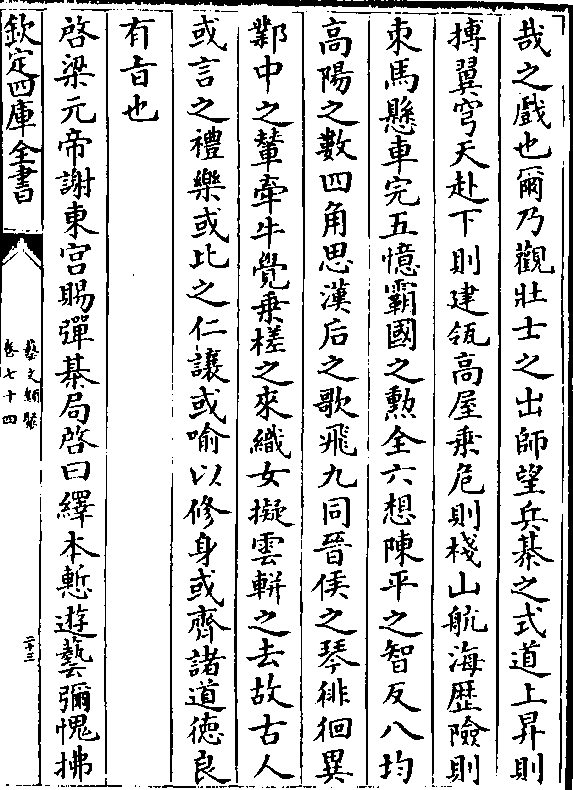 哉之戲也爾乃觀壯士之出師望兵棊之式道上昇則
摶翼穹天赴下則建瓴高屋乗危則棧山航海歴險則
束馬懸車完五憶霸國之勲全六想陳平之智反八均
髙陽之數四角思漢后之歌飛九同晉侯之琴徘徊異
鄴中之輦牽牛覺乗槎之來織女擬雲軿之去故古人
或言之禮樂或比之仁讓或喻以修身或齊諸道徳良
有㫖也
啓梁元帝謝東宫賜彈棊局啓曰繹本慙遊藝彌愧拂
欽定四庫全書
藝文類聚
卷七十四
二十三